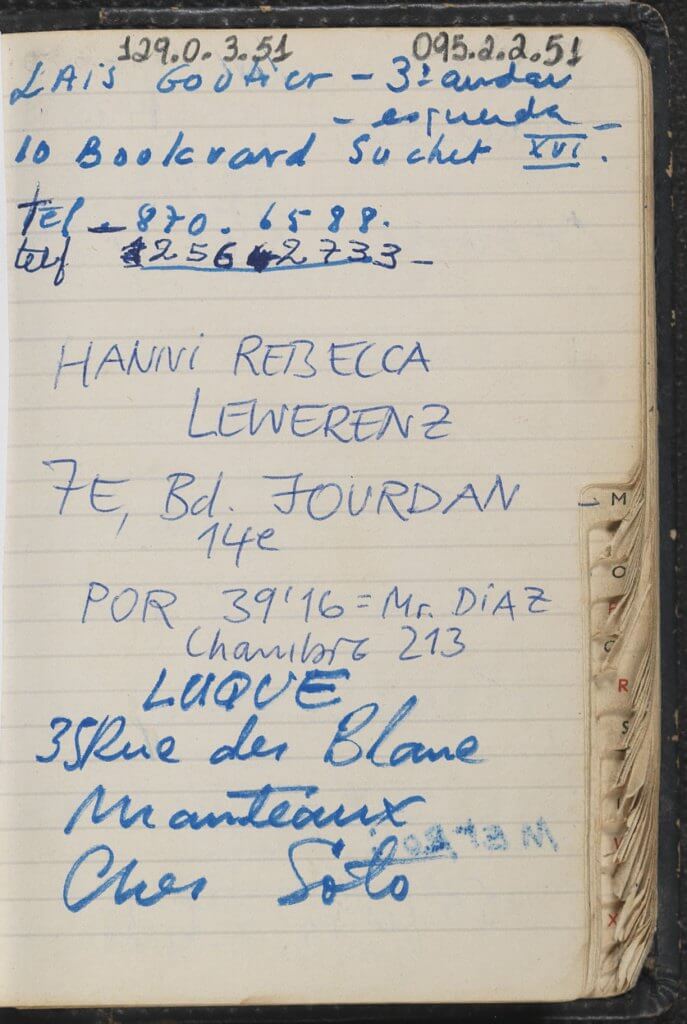 129.0.3.51 095.2.2.51
LAis GOUTiEr - 3º andar
- esquerda -
10 Boulevard Suchet XVI.
Tel - 870. 6588.
telf 256 2733 -
HANNi REBECCA
LEWERENZ
7E, Bd. JOURDAN
14e
POR 39'16 = Mr. DiAZ
Chambre 213
LUQUE
35 Rue des Blanc
Manteaux
Chez Soto
M
O
P
Q
R
S
V
X